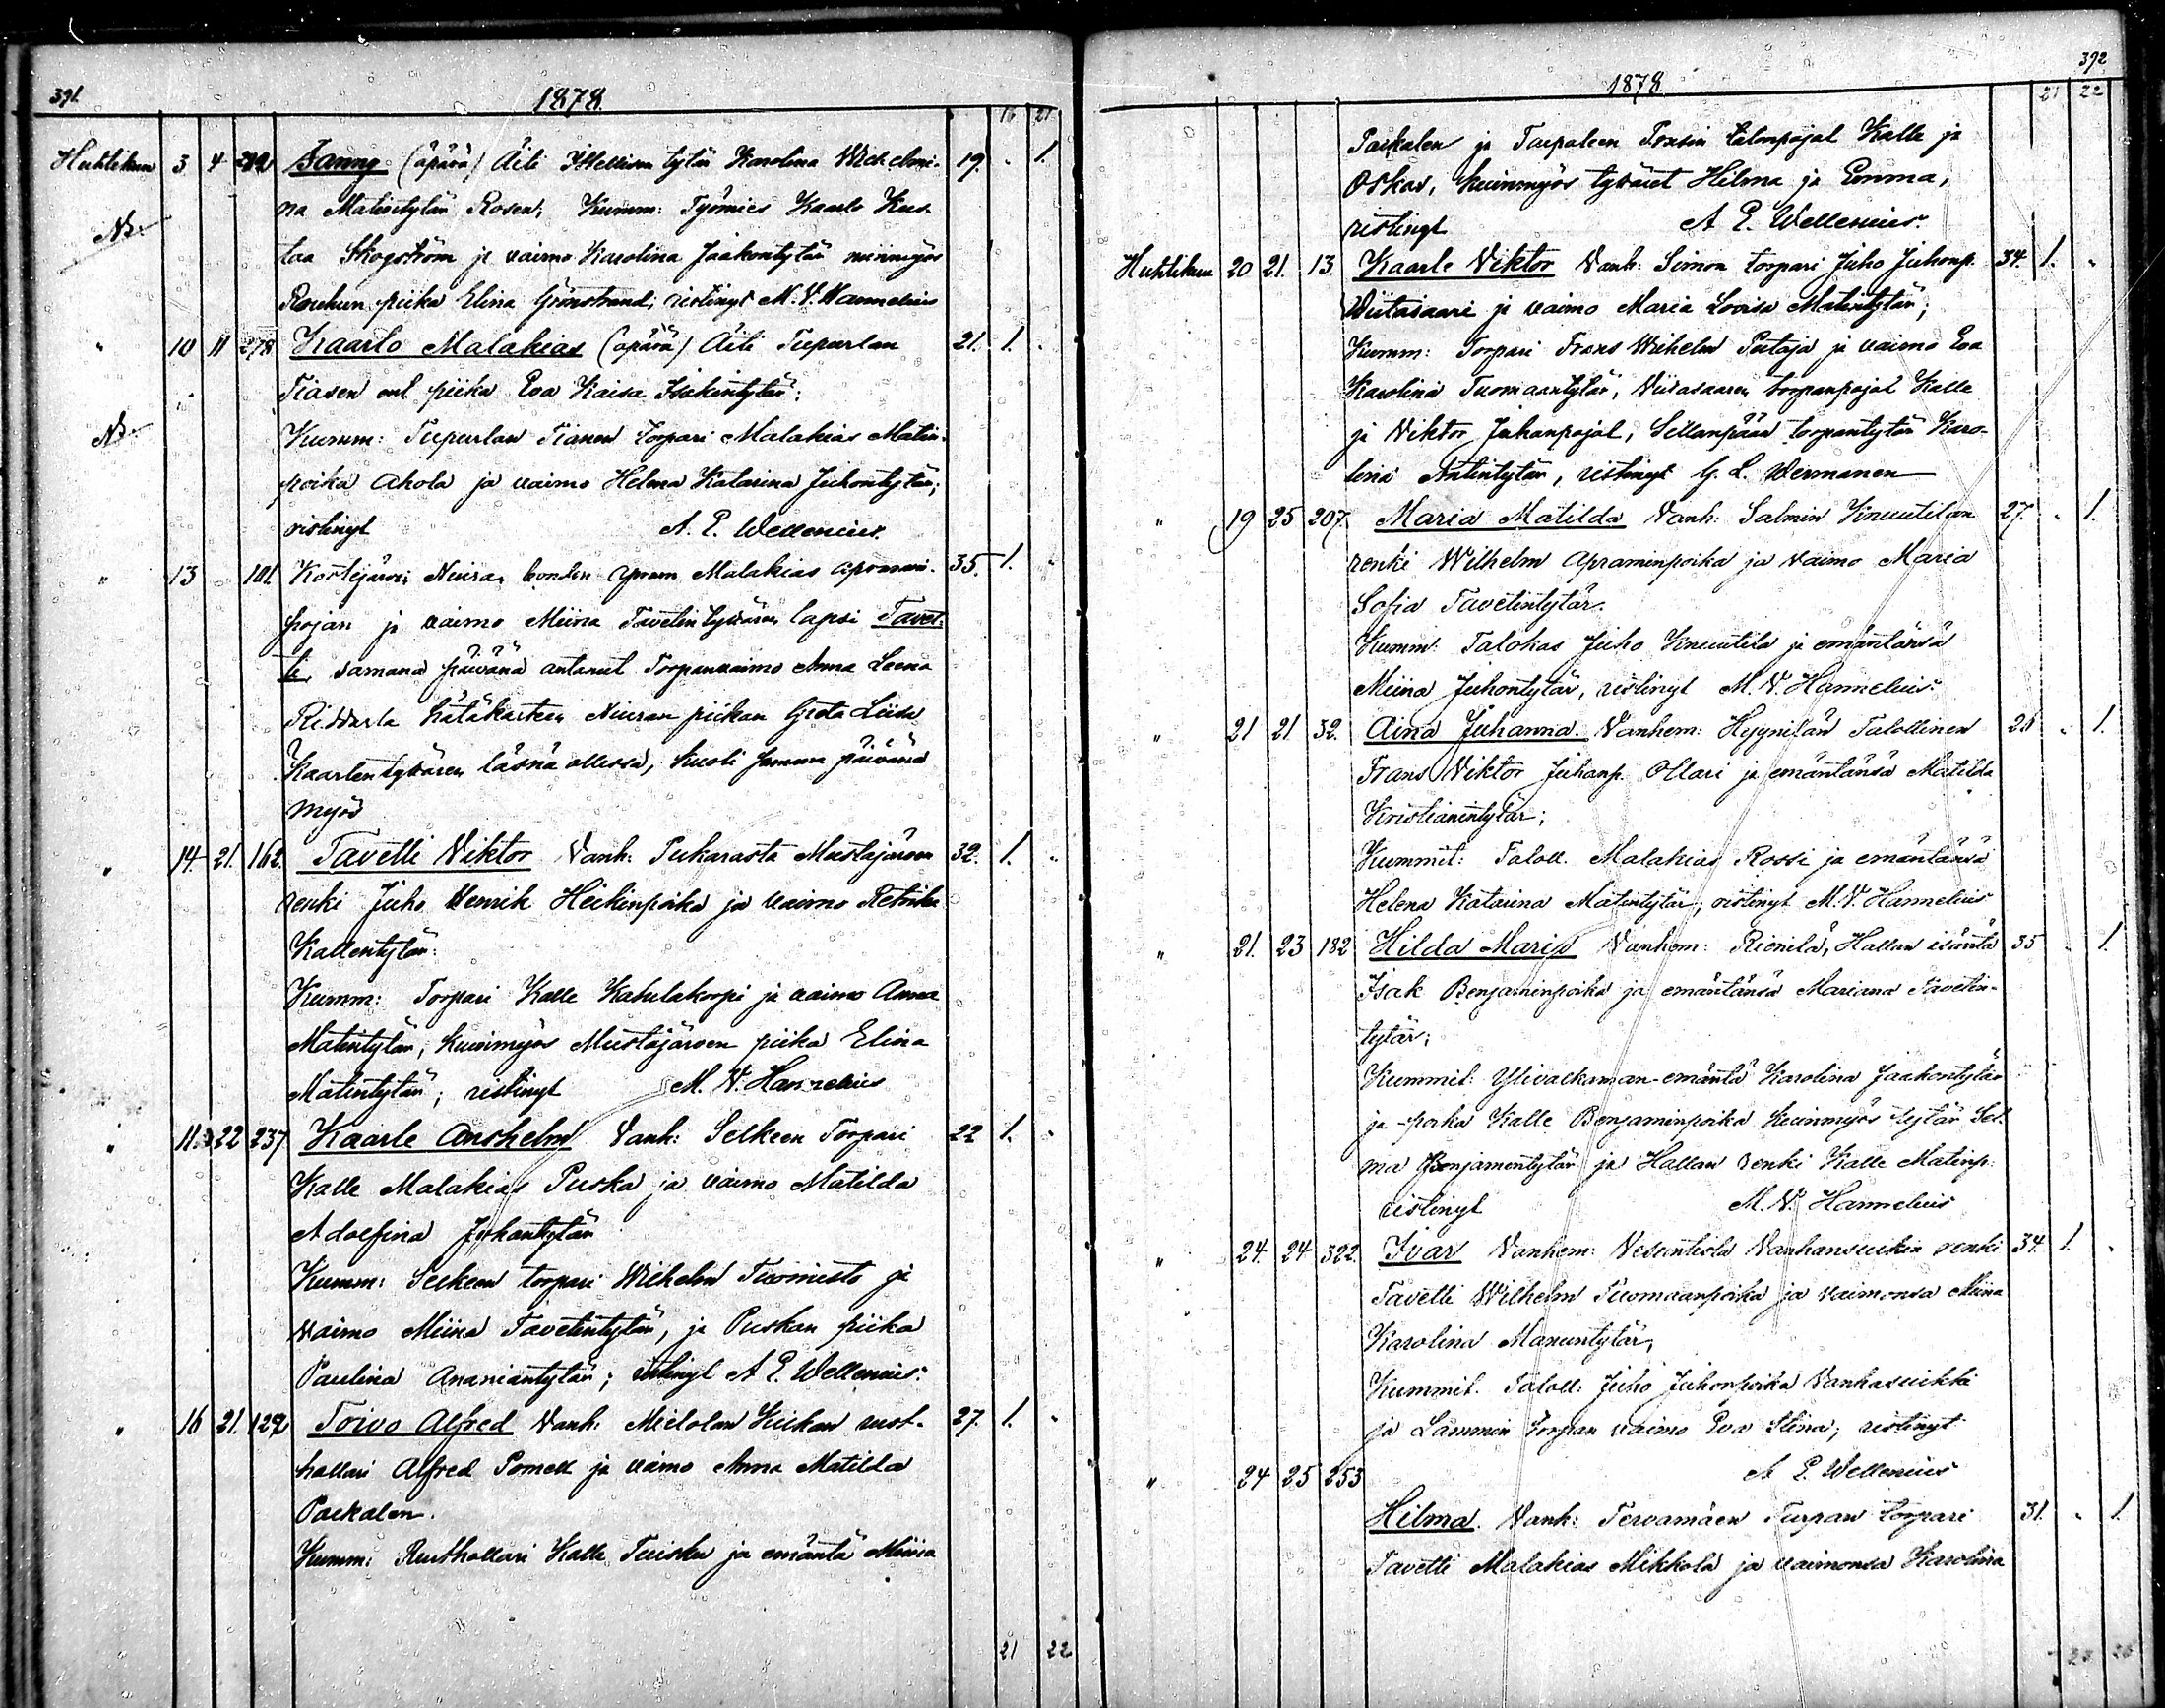 391.
1878.
16 21
Huhtikuu 3 4 Fanny (äpärä) Äiti tytär Karolina Wilhelmi- 19. „ 1.
NB. na Matintytär Rosen; Kumm: Työmies Kaarlo Kus-
taa Skogström ja vaimo Karolina Jaakontytär niinmyös
piika Elina Grönstrand; ristinyt M. V. Hannelius
„ 10 11 278 Kaarlo Malakias (äpärä) Äiti Tupurlan 21. 1. „
Tiasen ent piika Eva Kaisa Isakintytär;
NB. Kumm: Tupurlan Tiasen torpari Malakias Matin-
poika Ahola ja vaimo Helena Katarina Juhontytär;
ristinyt A. E. Wellenius.
„ 13 101. Kortejärvi Niuran Malakias 35. 1. „
pojan ja vaimo Miina Tavetintyttären lapsi Tavet-
ti, samana päivänä antanut Torpanvaimo Anna Leena
hätäkasteen Niuran piikan Greta Liisa
Kaarlentyttären läsnä ollessa, kuoli samana päivänä
myös
„ 14. 21. 162. Tavetti Viktor Vanh: Pukarasta Mustajärven 32. 1. „
renki Juho Henrik Heikinpoika ja vaimo
Kallentytär:
Kumm: Torpari Kalle Kahilakorpi ja vaimo Anna
Matintytär, kuinmyös Mustajärven piika Elina
Matintytär; ristinyt M. V. Hannelius
„ 11. 22 237. Kaarle Anshelm Vanh: Selkeen Torpari 22 1. „
Kalle Malakias Puska ja vaimo Matilda
Adolfina Juhontytär
Kumm: Selkeen torpari Wilhelm Tuomisto ja
vaimo Miina Tavetintytär, ja Puskan piika
Paulina Ananiantytär; ristinyt A. E. Wellenius.
„ 16 21. 129 Toivo Alfred Vanh: Mietolan Kiikan rust- 27. 1. „
hollari Alfred Pomell ja vaimo Anna Matilda
Packalen.
Kumm: Rusthollari Kalle Tuisku ja emäntä Miina
21 22
392
1878.
21 22
Packalen ja Taipaleen talonpojat Kalle ja
Oskar, kuinmyös tyttäret Hilma ja Emma,
ristinyt A. E. Wellenius.
Huhtikuu 20 21. 13. Kaarle Viktor Vanh: Simon torpari Juho Juhonp. 34. 1. „
Wiitasaari ja vaimo Maria Lovisa Matintytär;
Kumm: Torpari Frans Wilhelm Pietaja ja vaimo Eva
Karolina Tuomaantytär, Viitasaaren torpanpojat Kalle
ja Viktor Juhanpojat, Sillanpään torpantytär Karo-
lina Antintytär, ristinyt G. L. Wermanen
„ 19 25 207. Maria Matilda Vanh: Salmin Knuutilan 27. „ 1.
renki Wilhelm Apraminpoika ja vaimo Maria
Sofia Tavetintytär.
Kumm: Talokas Juho Knuutila ja emäntänsä
Miina Juhontytär, ristinyt M. V. Hannelius.
„ 21 21 32. Aina Juhanna. Vanhem: Hyynilän Talollinen 26 „ 1.
Frans Viktor Juhanp. Ollari ja emäntänsä Matilda
Kristianintytär;
Kummit: Taloll. Malakias Rossi ja emäntänsä
Helena Katarina Matintytär; ristinyt M. V. Hannelius
„ 21. 23 182 Hilda Maria Vanhem: Rienilä, Hallan isäntä 35 „ 1.
Isak Benjaminpoika ja emäntänsä Mariana Tavetin-
tytär;
Kummit: Ylivalkaman-emäntä Karolina Jaakontytär
ja -poika Kalle Benjaminpoika kuinmyös tytär Sel-
ma Benjamintytär ja Hallan renki Kalle Matinp.
ristinyt M. V. Hannelius
„ 24. 24 322. Ivar Vanhem: Vesuntista Vanhansuikin renki 34. 1. „
Tavetti Wilhelm Tuomaanpoika ja vaimonsa Miina
Karolina Manuntytär;
Kummit. Taloll: Juho Juhonpoika Vanhasuikki
ja Lammin torpan vaimo Eva Stina; ristinyt
„ 24 25 253 A E. Wellenius
Hilma. Vanh: Tervamäen Turpan torpari 31. „ 1
Tavetti Malakias Mikkola ja vaimonsa Karolina